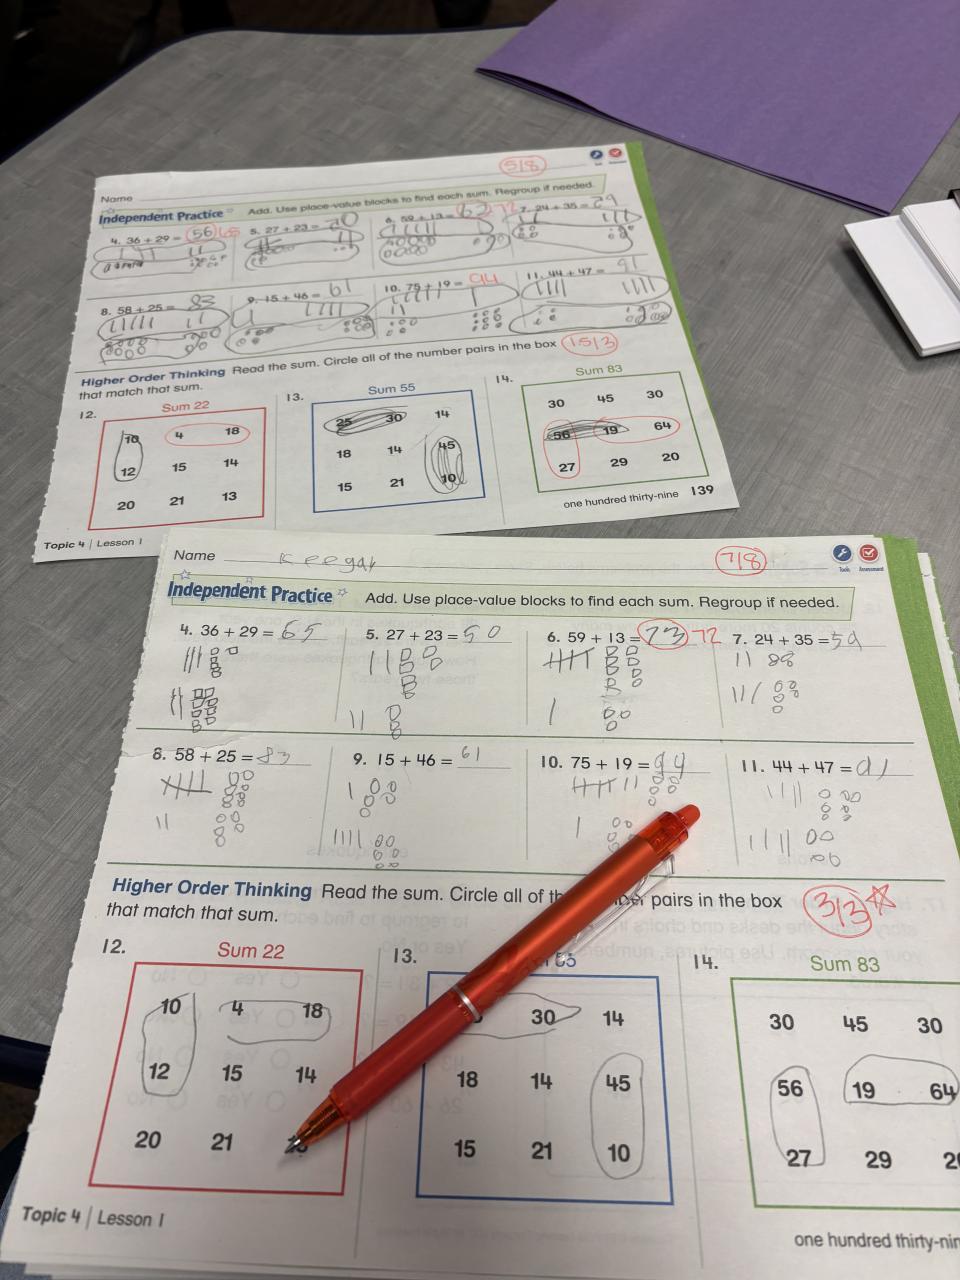 5/8
Name
Independent Practice Add. Use place-value blocks to find each sum. Regroup if needed.
4. 36 + 29 = 56 65
5. 27 + 23 =
6. 59 + 13 = 62 72
7. 24 + 35 = 59
8. 58 + 25 = 83
9. 15 + 46 = 61
10. 75 + 19 = 94
11. 44 + 47 = 91
Higher Order Thinking Read the sum. Circle all of the number pairs in the box
that match that sum.
1.5/3
12. Sum 22
10 4 18
12 15 14
20 21 13
13. Sum 55
25 30 14
18 14 45
15 21 10
14. Sum 83
30 45 30
56 19 64
27 29 20
Topic 4 | Lesson 1
one hundred thirty-nine 139
Name Keegan
7/8
Tools Assessment
Independent Practice Add. Use place-value blocks to find each sum. Regroup if needed.
4. 36 + 29 = 65
5. 27 + 23 = 50
6. 59 + 13 = 73 72
7. 24 + 35 = 59
8. 58 + 25 = 83
9. 15 + 46 = 61
10. 75 + 19 = 94
11. 44 + 47 = 91
Higher Order Thinking Read the sum. Circle all of pairs in the box
that match that sum.
3/3
12. Sum 22
10 4 18
12 15 14
20 21
13.
30 14
18 14 45
15 21 10
14. Sum 83
30 45 30
56 19 64
27 29
Topic 4 | Lesson 1
one hundred thirty-nin